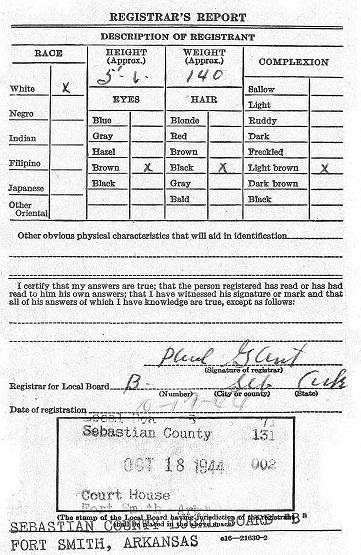 REGISTRAR'S REPORT
DESCRIPTION OF REGISTRANT
RACE
HEIGHT (Approx.)
WEIGHT (Approx.)
COMPLEXION
5'-6.
140
White X
EYES
HAIR
Sallow
Light
Negro
Blue
Blonde
Ruddy
Gray
Red
Dark
Indian
Hazel
Brown
Freckled
Filipino
Brown X
Black X
Light brown X
Japanese
Black
Gray
Dark brown
Other Oriental
Bald
Black
Other obvious physical characteristics that will aid in identification
I certify that my answers are true; that the person registered has read or has had
read to him his own answers; that I have witnessed his signature or mark and that
all of his answers of which I have knowledge are true, except as follows:
Paul Gant
(Signature of registrar)
Registrar for Local Board B Seb Ark
(Number) (City or county) (State)
Date of registration
Sebastian County 131
OCT 18 1944 002
Court House
Fort Smith, Ark
(The stamp of the Local Board having jurisdiction of the registrant
shall be placed in the above space.)
SEBASTIAN COUNTY LOCAL BOARD "B"
FORT SMITH, ARKANSAS c16—21630-2